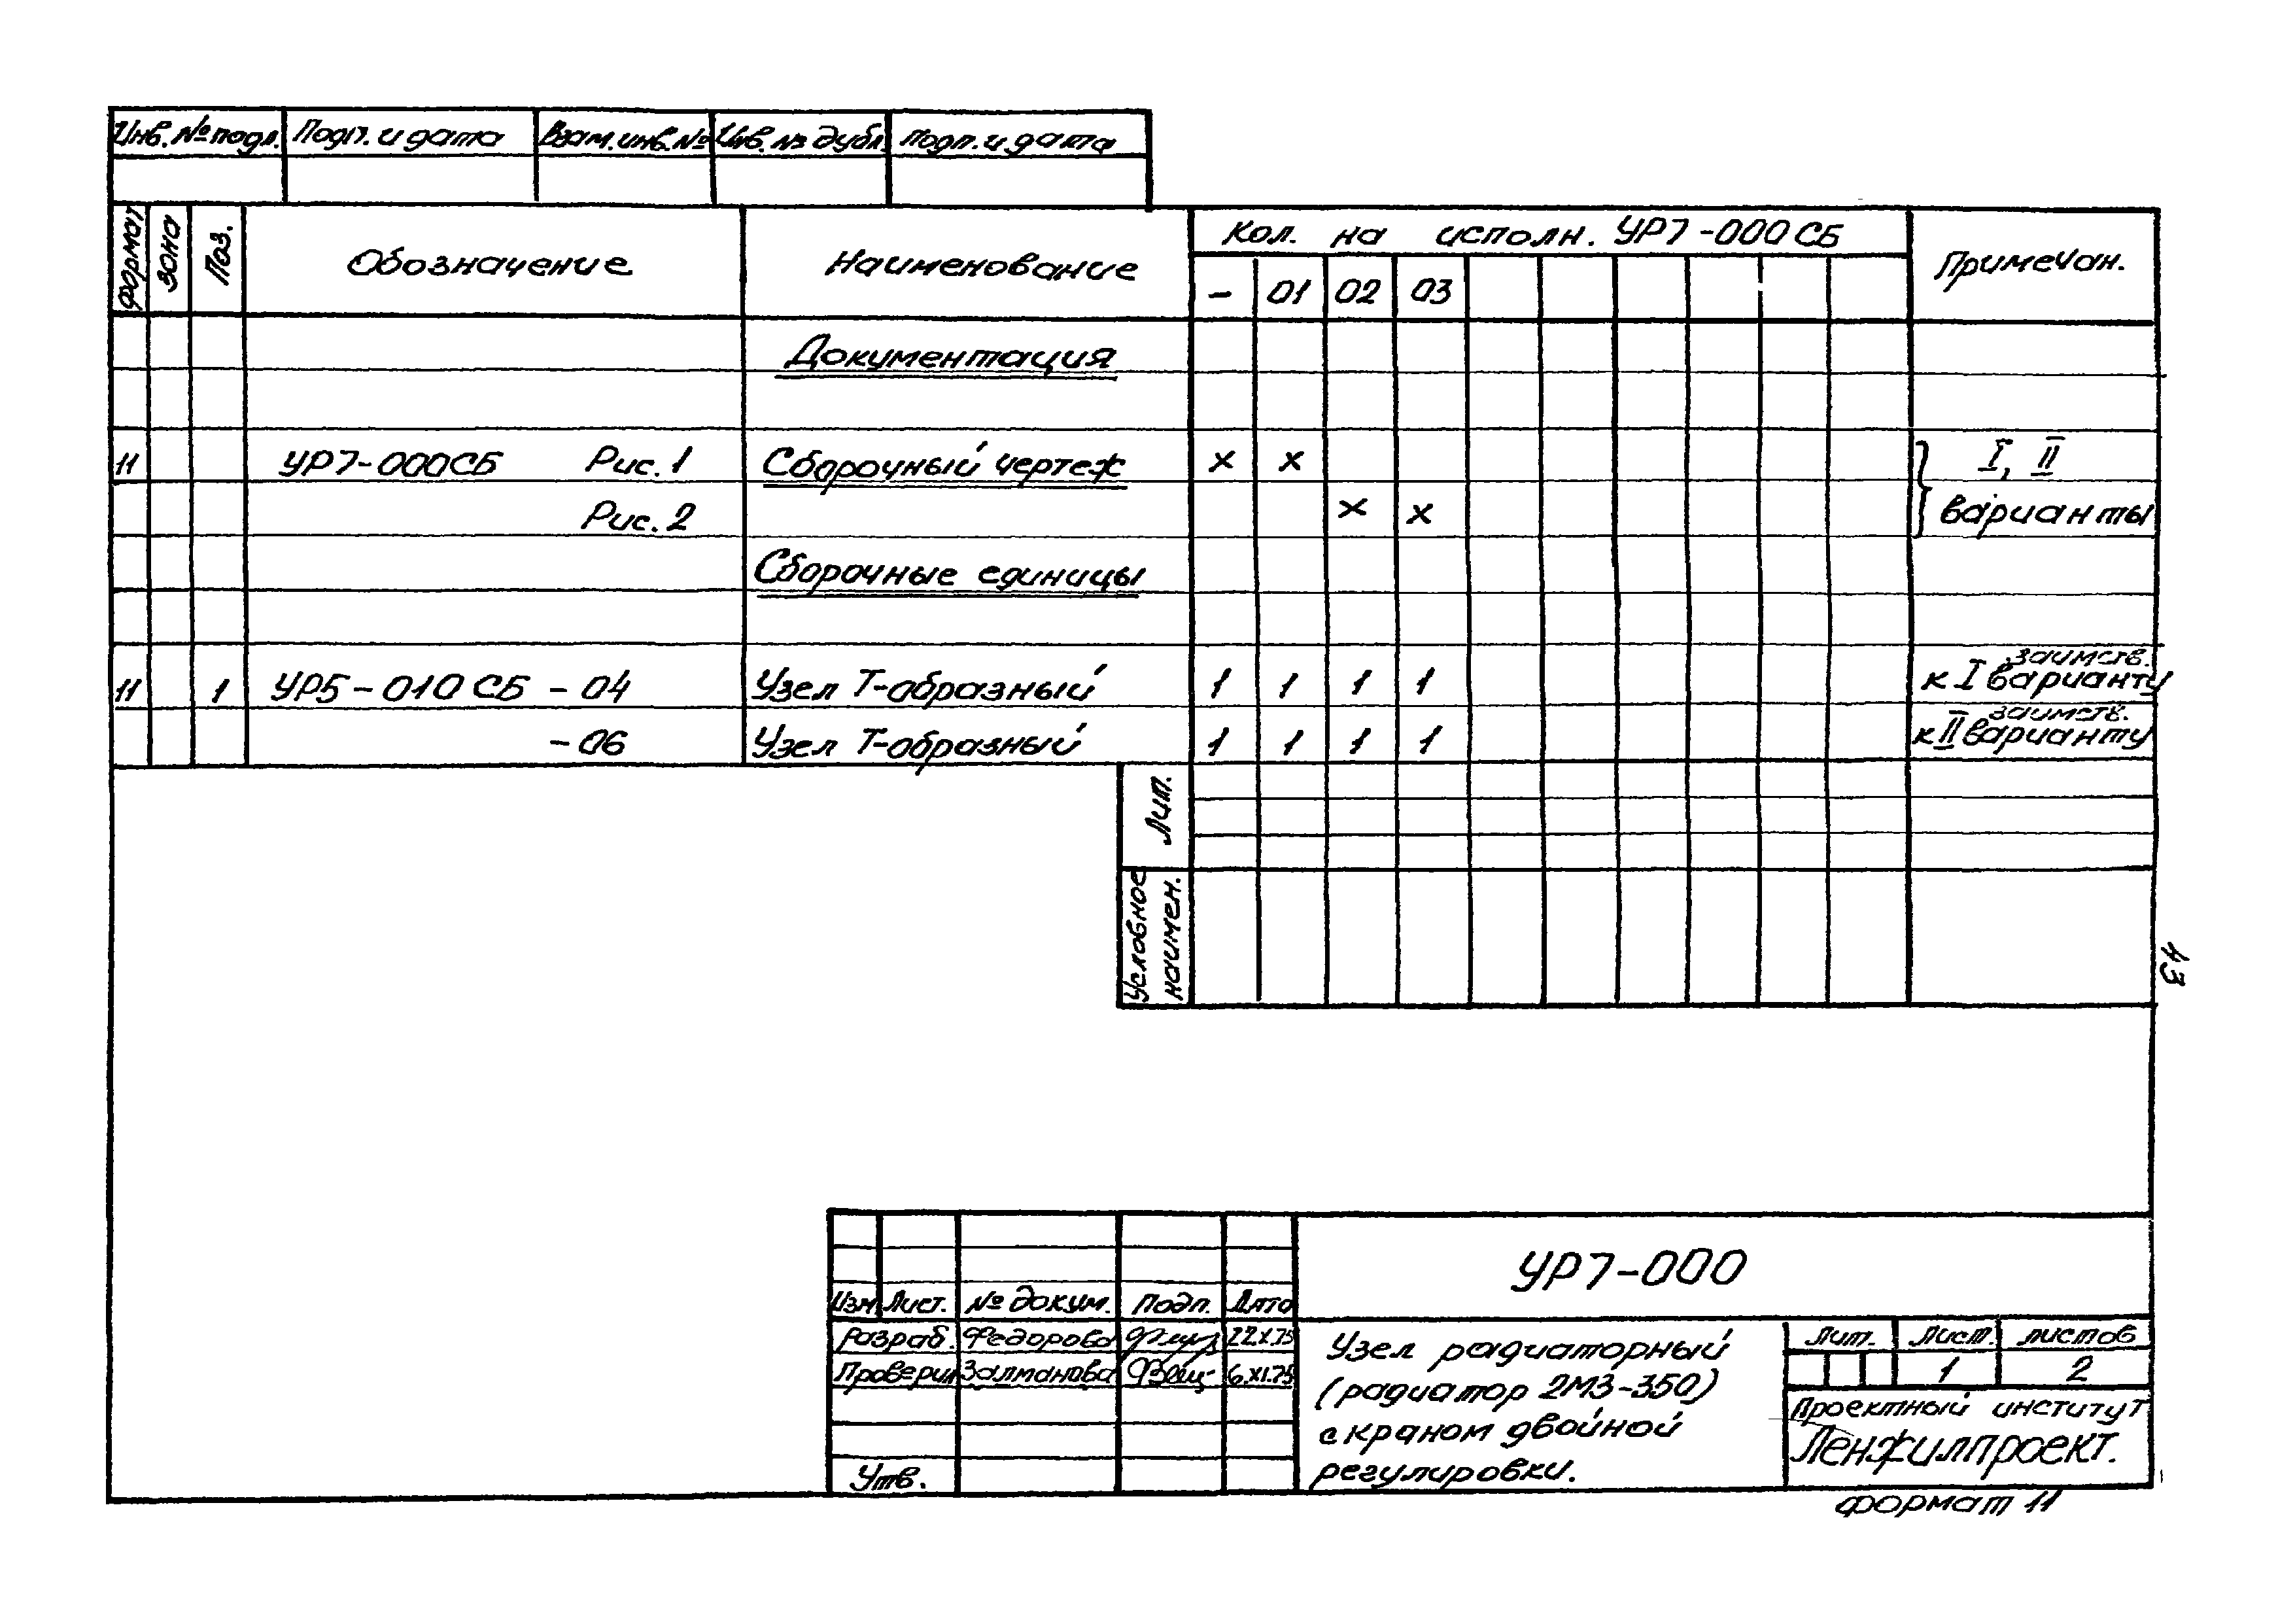 Инв. № подл. Подп. и дата Взам. инв. № Инв. № дубл. Подп. и дата
Формат Зона Поз. Обозначение Наименование Кол. на исполн. УР7-000 СБ Примечан.
- 01 02 03
Документация
11 УР7-000СБ Рис. 1 Сборочный чертеж х х I, II
Рис. 2 х х варианты
Сборочные единицы
11 1 УР5-010 СБ - 04 Узел Т-образный 1 1 1 1 заимств. к I варианту
- 06 Узел Т-образный 1 1 1 1 заимств. к II варианту
Лит.
Условное наимен.
43
УР7-000
Изм Лист. № докум. Подп. Дата
Разраб. Федорова 22.X.75
Проверил Залманова 6.XI.75
Утв.
Узел радиаторный
(радиатор 2МЗ-350)
с краном двойной
регулировки.
Лит. Лист. листов
1 2
Проектный институт
Ленжилпроект.
формат 11